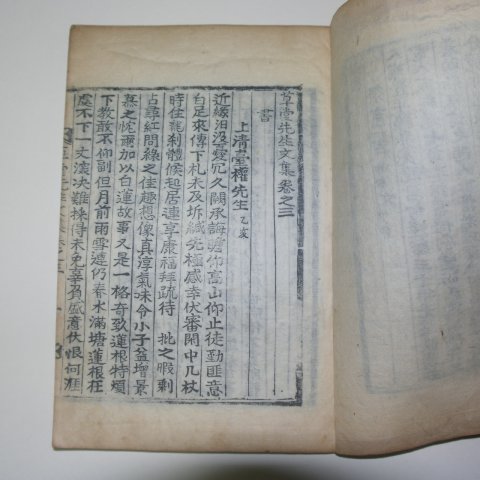 草堂先生文集卷之三
書
上清臺權先生 乙亥
近緣汨沒憂冗久闕承誨瞻仰高山仰止徒勤匪意
白足來傳下札未及坼緘先極感幸伏審閑中几杖
時住龍刹體候起居連享康福拜疏待 批之暇剩
占尋紅問綠之佳趣想像眞淳氣味令小子益增景
慕之忱爾加以白蓮故事又是一格奇致蓮根特煩
下教敢不仰副但月前雨雪遠仍春水滿塘蓮根在
處不下一丈深決難採得未免辜負盛意伏恨何涯